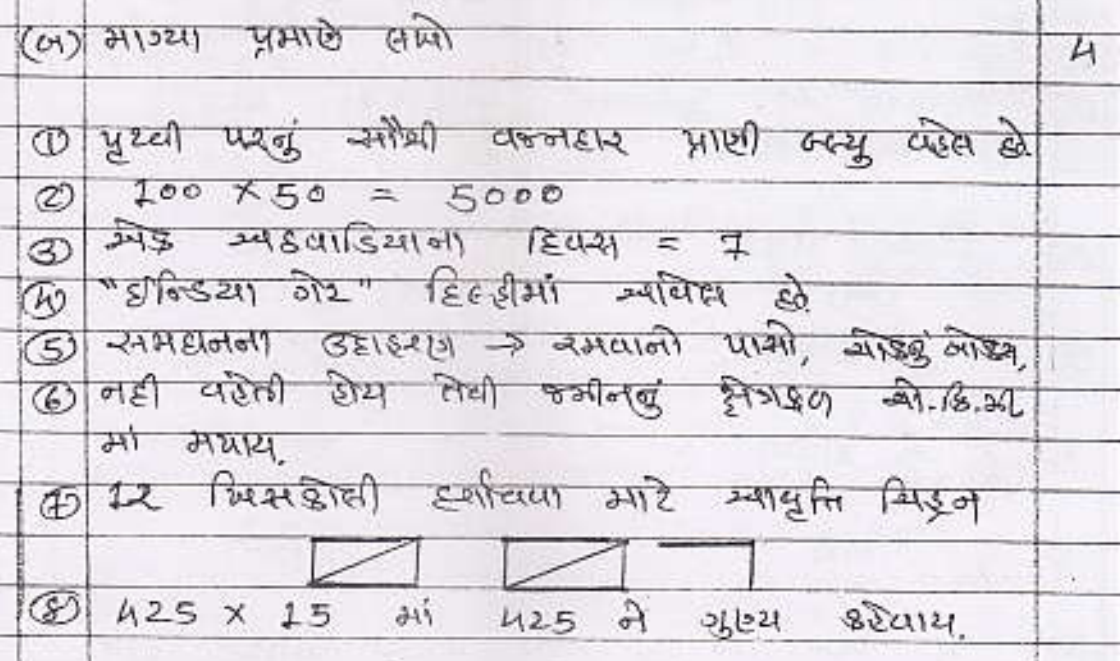 (બ) માગ્યા પ્રમાણે લખો 4
① પૃથ્વી પરનું સૌથી વજનદાર પ્રાણી બ્લ્યુ વ્હેલ છે.
② 100 × 50 = 5000
③ એક અઠવાડિયાના દિવસ = 7
④ "ઈન્ડિયા ગેટ" દિલ્હીમાં આવેલ છે.
⑤ સમઘનની ઉદાહરણ → રમવાનો પાસો, ચોકનું બોક્સ,
⑥ નહી વહેતી હોય તેવી જમીનનું ક્ષેત્રફળ ચો.કિ.મી
માં મપાય.
⑦ 12 ખિસકોલી દર્શાવવા માટે આવૃત્તિ ચિહ્ન
⑧ 425 × 15 માં 425 ને ગુણ્ય કહેવાય.